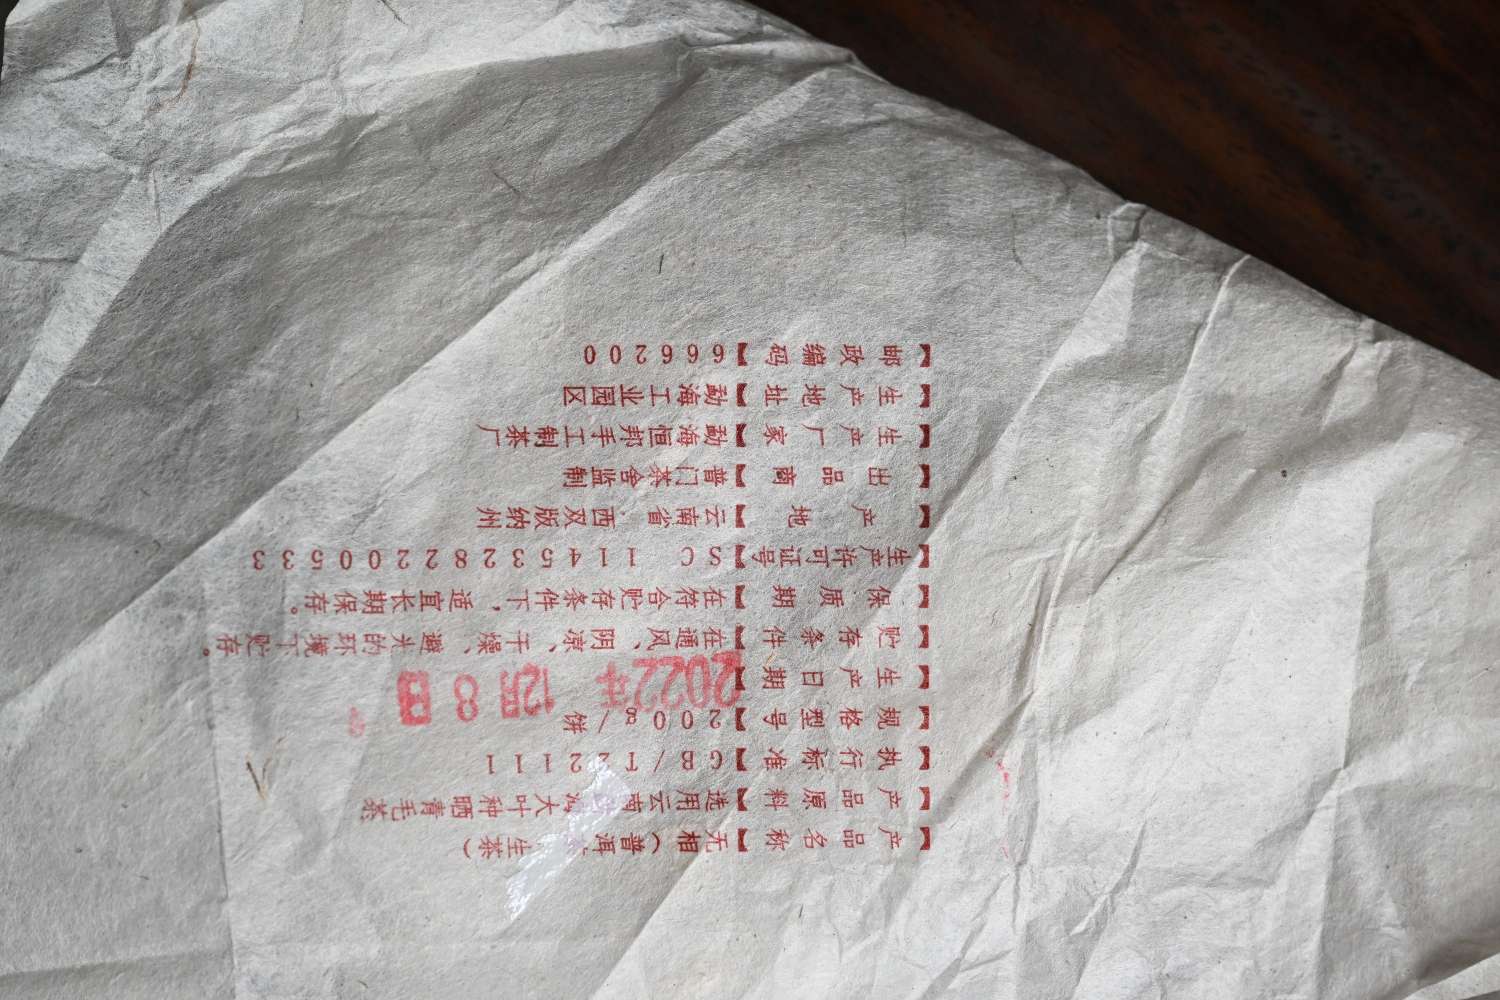 【产品名称】无相（普洱 生茶）
【产品原料】选用云南 大叶种晒青毛茶
【执行标准】GB/T22111
【规格型号】200g/饼
【生产日期】2022年 12月 8日
【贮存条件】在通风、阴凉、干燥、避光的环境下贮存。
【保质期】在符合贮存条件下，适宜长期保存。
【生产许可证号】SC 11453282200533
【产地】云南省·西双版纳州
【出品商】普门茶舍监制
【生产厂家】勐海恒邦手工制茶厂
【生产地址】勐海工业园区
【邮政编码】666200